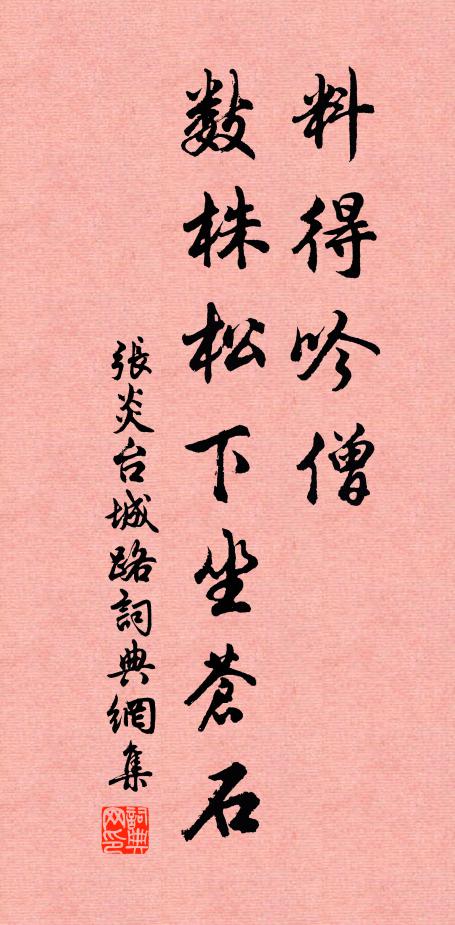 料得吟僧
数株松下坐蒼石
張炎台城路詞典網集
詞典网印